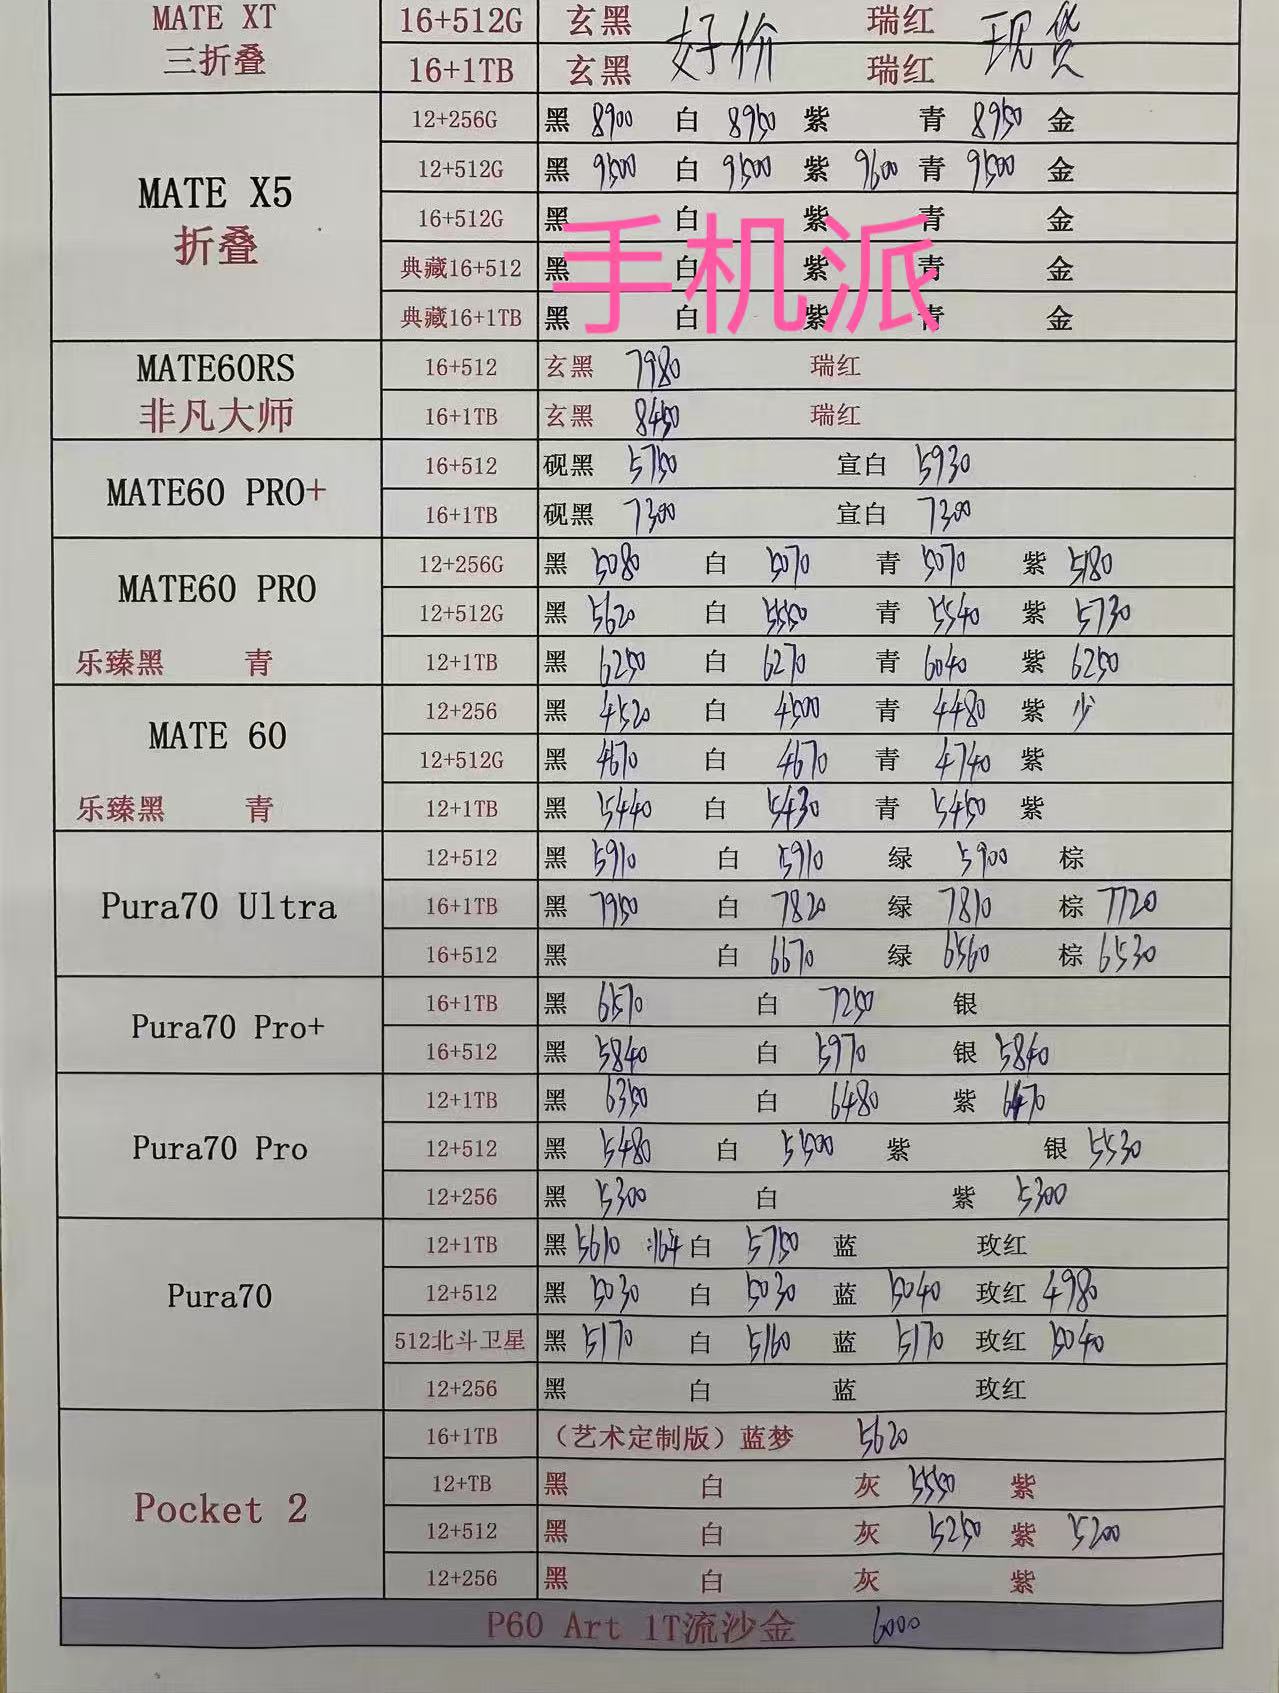 MATE XT 16+512G 玄黑 瑞红
三折叠 16+1TB 玄黑 好价 瑞红 现货
MATE X5
折叠
12+256G 黑 8900 白 8950 紫 青 8950 金
12+512G 黑 9500 白 9500 紫 9600 青 9500 金
16+512G 黑 白 紫 青 金
典藏16+512 黑 白 紫 青 金
典藏16+1TB 黑 白 紫 青 金
手机派
MATE60RS 16+512 玄黑 7980 瑞红
非凡大师 16+1TB 玄黑 8450 瑞红
MATE60 PRO+
16+512 砚黑 5750 宣白 5930
16+1TB 砚黑 7300 宣白 7300
MATE60 PRO
12+256G 黑 5080 白 5070 青 5070 紫 5180
12+512G 黑 5620 白 5550 青 5540 紫 5730
乐臻黑 青 12+1TB 黑 6250 白 6270 青 6040 紫 6250
MATE 60
12+256 黑 4520 白 4500 青 4480 紫 少
12+512G 黑 4670 白 4670 青 4740 紫
乐臻黑 青 12+1TB 黑 5440 白 5430 青 5450 紫
Pura70 Ultra
12+512 黑 5910 白 5910 绿 5900 棕
16+1TB 黑 7950 白 7820 绿 7810 棕 7720
16+512 黑 白 6670 绿 6560 棕 6530
Pura70 Pro+
16+1TB 黑 6570 白 7250 银
16+512 黑 5840 白 5970 银 5840
Pura70 Pro
12+1TB 黑 6350 白 6480 紫 6470
12+512 黑 5480 白 5500 紫 银 5530
12+256 黑 5300 白 紫 5300
Pura70
12+1TB 黑 5610 白 5750 蓝 玫红
12+512 黑 5030 白 5030 蓝 5040 玫红 4980
512北斗卫星 黑 5170 白 5160 蓝 5170 玫红 5040
12+256 黑 白 蓝 玫红
Pocket 2
16+1TB （艺术定制版）蓝梦 5620
12+TB 黑 白 灰 5550 紫
12+512 黑 白 灰 5250 紫 5200
12+256 黑 白 灰 紫
P60 Art 1T流沙金 6000